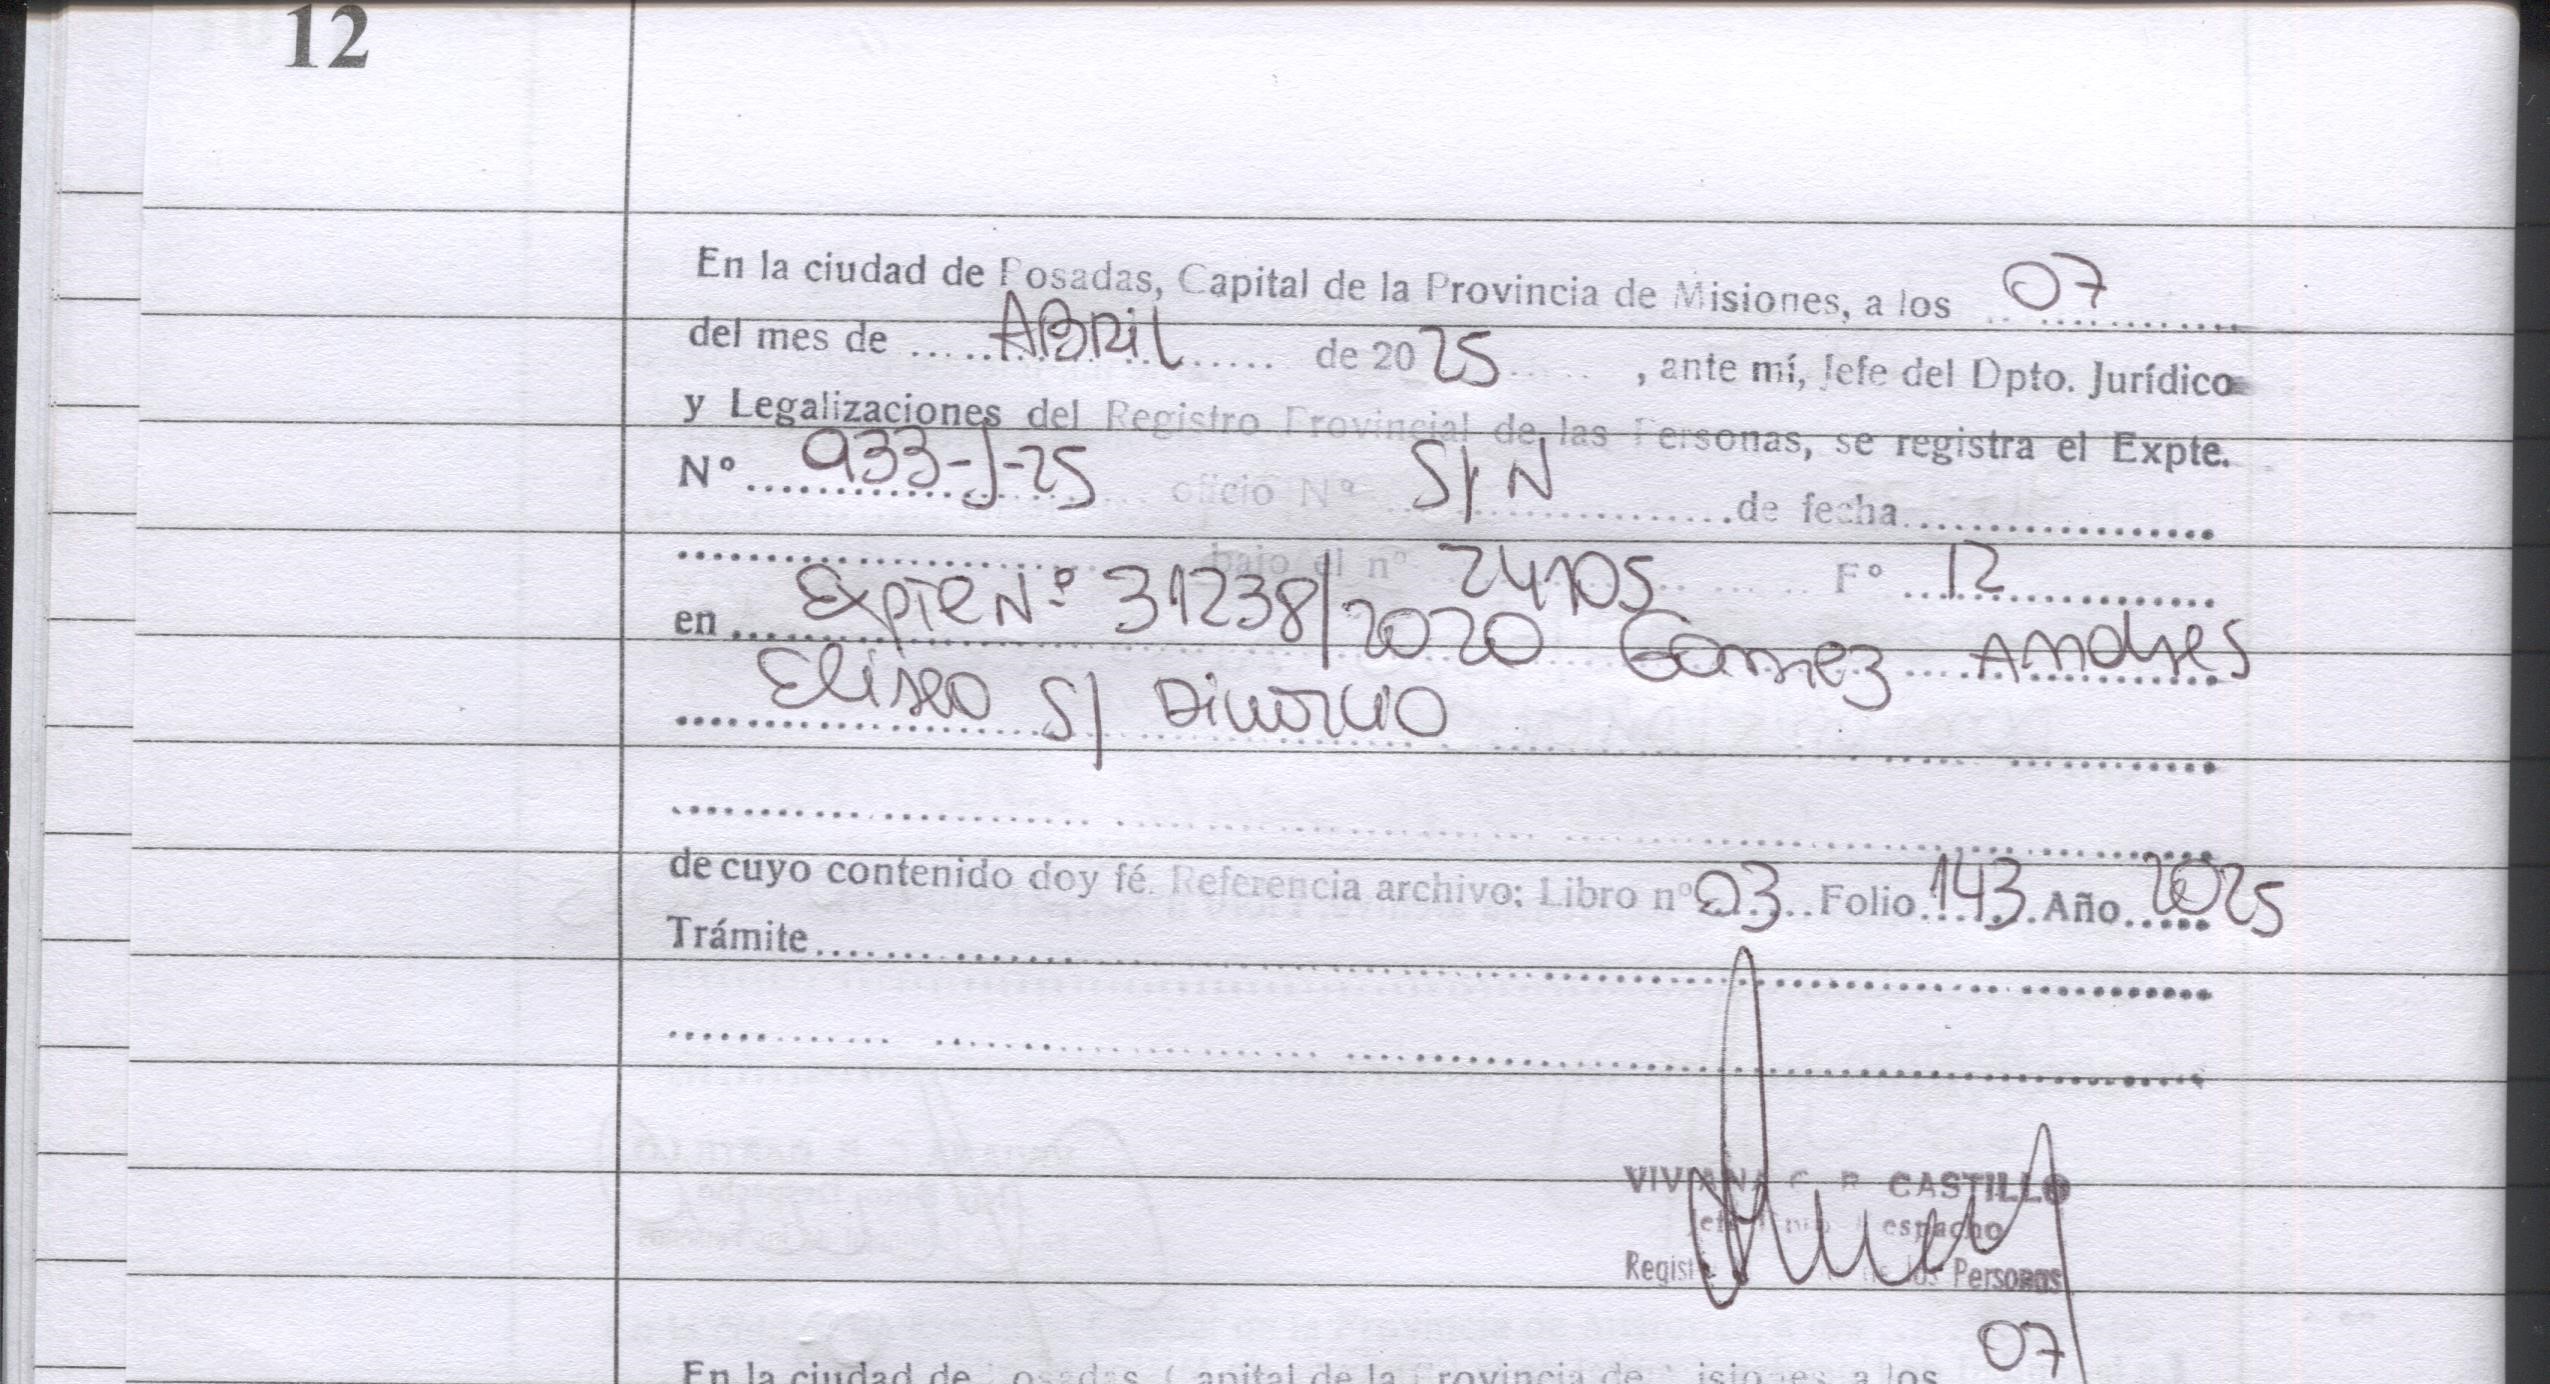 12
En la ciudad de Posadas, Capital de la Provincia de Misiones, a los 07
del mes de ABRil de 2025, ante mí, Jefe del Dpto. Jurídico
y Legalizaciones del Registro Provincial de las Personas, se registra el Expte.
Nº 933-J-25 oficio Nº S/N de fecha
bajo el nº 24105 Fº 12
en Expte Nº 31238/2020 Gomez Andres
Eliseo S/ Divorcio
de cuyo contenido doy fé. Referencia archivo; Libro nº 03 Folio 143 Año 2025
Trámite
VIVIANA C. R. CASTILLO
Jefe Dpto Despacho
Regist de las Personas
En la ciudad de Posadas, Capital de la Provincia de Misiones, a los 07